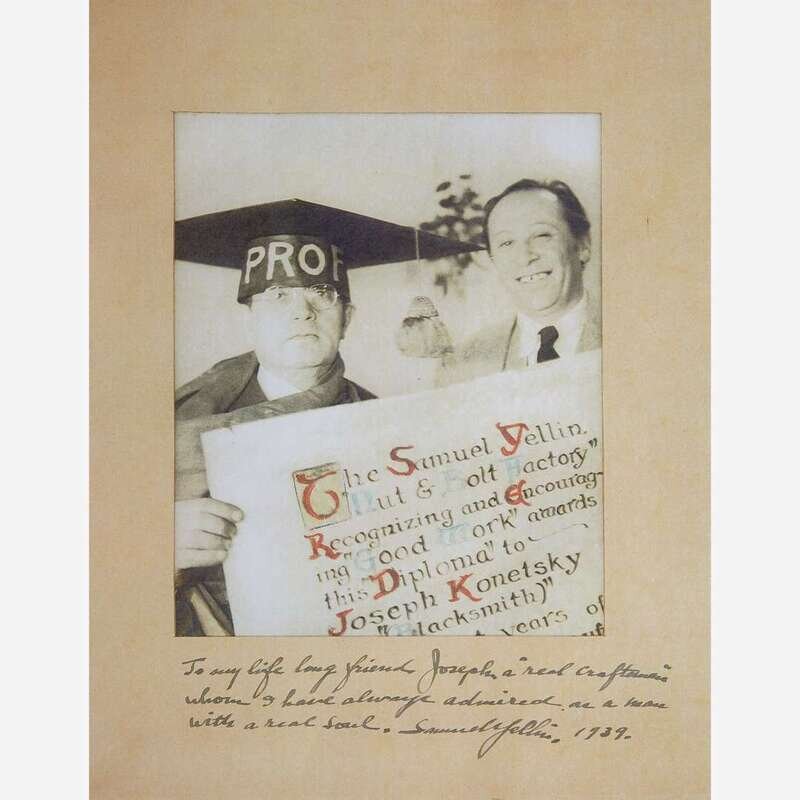 PROF
The Samuel Yellin
"Nut & Bolt Factory"
Recognizing and Encourag-
ing "Good Work" awards
this "Diploma" to
Joseph Konetsky
"(Blacksmith)"
years of
To my life long friend Joseph, a "real craftsman"
whom I have always admired as a man
with a real soul. Samuel Yellin, 1939.